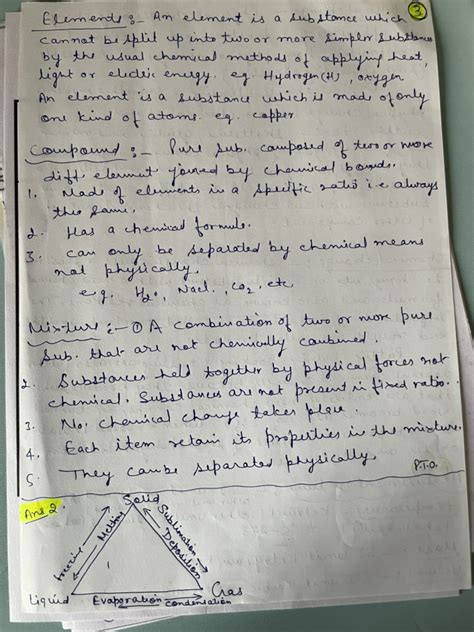 3
Elements :- An element is a substance which
cannot be split up into two or more simpler substances
by the usual chemical methods of applying heat,
light or electric energy. eg. Hydrogen(H), oxygen
An element is a substance which is made of only
one kind of atoms. eg. copper
Compound :- Pure sub. composed of two or more
diff. element joined by chemical bonds.
1. Made of elements in a specific ratio i.e. always
the same.
2. Has a chemical formula.
3. can only be separated by chemical means
not physically.
e.g. H2O, Nacl, CO2, etc
Mixture :- ① A combination of two or more pure
Sub. that are not chemically combined.
2. Substances held together by physical forces not
chemical. Substances are not present in fixed ratio.
3. No. chemical change takes place.
4. Each item retain its properties in the mixture.
5. They can be separated physically.
P.T.O.
Ans 2.
Solid
Freezing
Melting
Sublimation
Deposition
Liquid
Evaporation
condensation
Gas